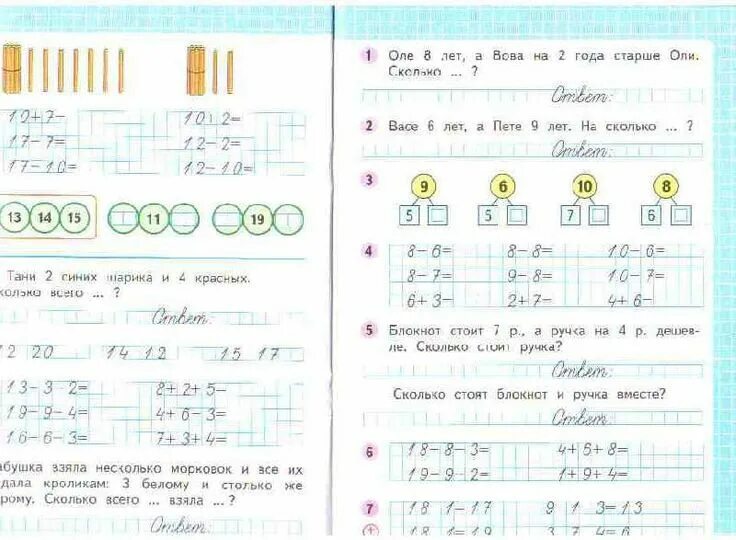 10+7=
17-7=
17-10=
10+2=
12-2=
12-10=
13 14 15
11
19
Тани 2 синих шарика и 4 красных.
колько всего ... ?
Ответ:
12 20 14 12 15 17
13-3-2=
19-9-4=
16-6-3=
8+2+5=
4+6-3=
7+3+4=
абушка взяла несколько морковок и все их
дала кроликам: 3 белому и столько же
рому. Сколько всего ... взяла ... ?
Ответ:
1 Оле 8 лет, а Вова на 2 года старше Оли.
Сколько ... ?
Ответ:
2 Васе 6 лет, а Пете 9 лет. На сколько ... ?
Ответ:
3
9 6 10 8
5 5 7 6
4
8-6= 8-8= 10-6=
8-7= 9-8= 10-7=
6+3= 2+7= 4+6=
5 Блокнот стоит 7 р., а ручка на 4 р. дешев-
ле. Сколько стоит ручка?
Ответ:
Сколько стоят блокнот и ручка вместе?
Ответ:
6
18-8-3= 4+6+8=
19-9-2= 1+9+4=
7
18 1=17 9 1 3=13
18 1=19 3 7 4=6